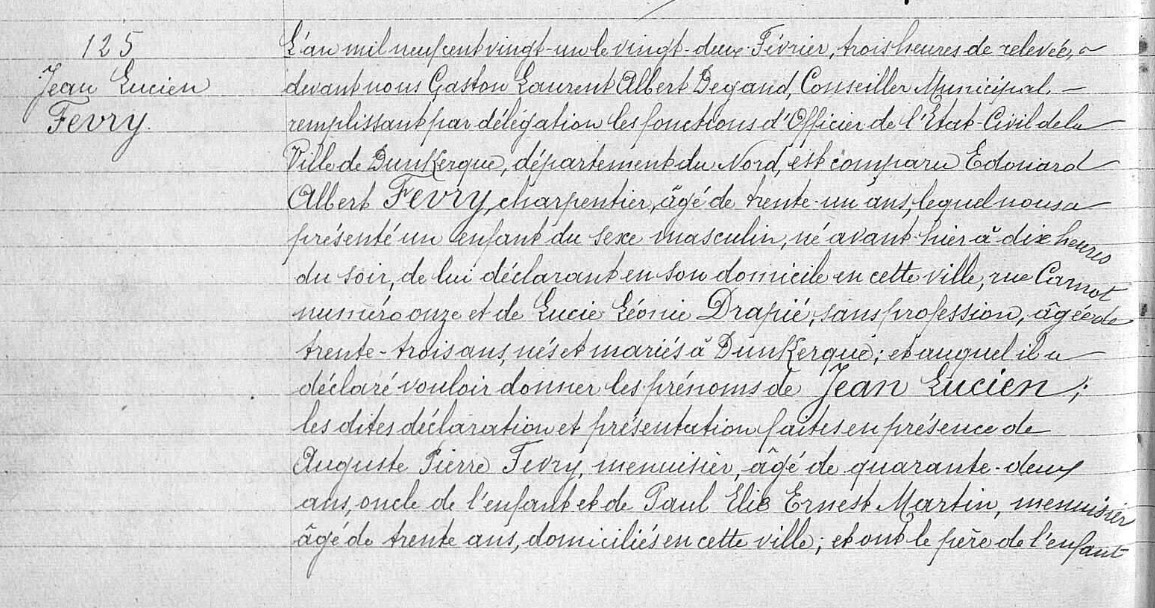 125
Jean Lucien
Fevry.
L'an mil neuf cent vingt-un le vingt-deux Février, trois heures de relevée,
devant nous Gaston Laurent Albert Degand, Conseiller Municipal, —
remplissant par délégation les fonctions d'Officier de l'Etat-Civil de la
Ville de Dunkerque, département du Nord, est comparu Edouard
Albert Fevry, charpentier, âgé de trente-un ans, lequel nous a
présenté un enfant du sexe masculin, né avant-hier à dix heures
du soir, de lui déclarant en son domicile en cette ville, rue Carnot
numéro onze et de Lucie Léonie Drapié, sans profession, âgée de
trente-trois ans, nés et mariés à Dunkerque; et auquel il a
déclaré vouloir donner les prénoms de Jean Lucien;
les dites déclaration et présentation faites en présence de
Auguste Pierre Fevry, menuisier, âgé de quarante-deux
ans, oncle de l'enfant et de Paul Elie Ernest Martin, menuisier
âgé de trente ans, domiciliés en cette ville; et ont le père de l'enfant